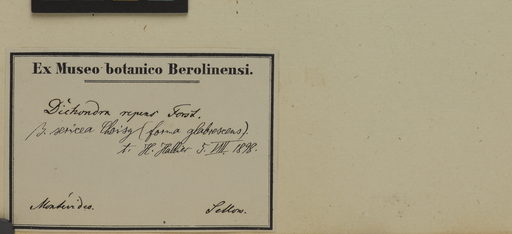 Ex Museo botanico Berolinensi.
Dichondra repens Forst.
β. sericea Choisy (forma glabrescens).
t. H. Hallier 5. VIII. 1898.
Montevideo.
Sellow.